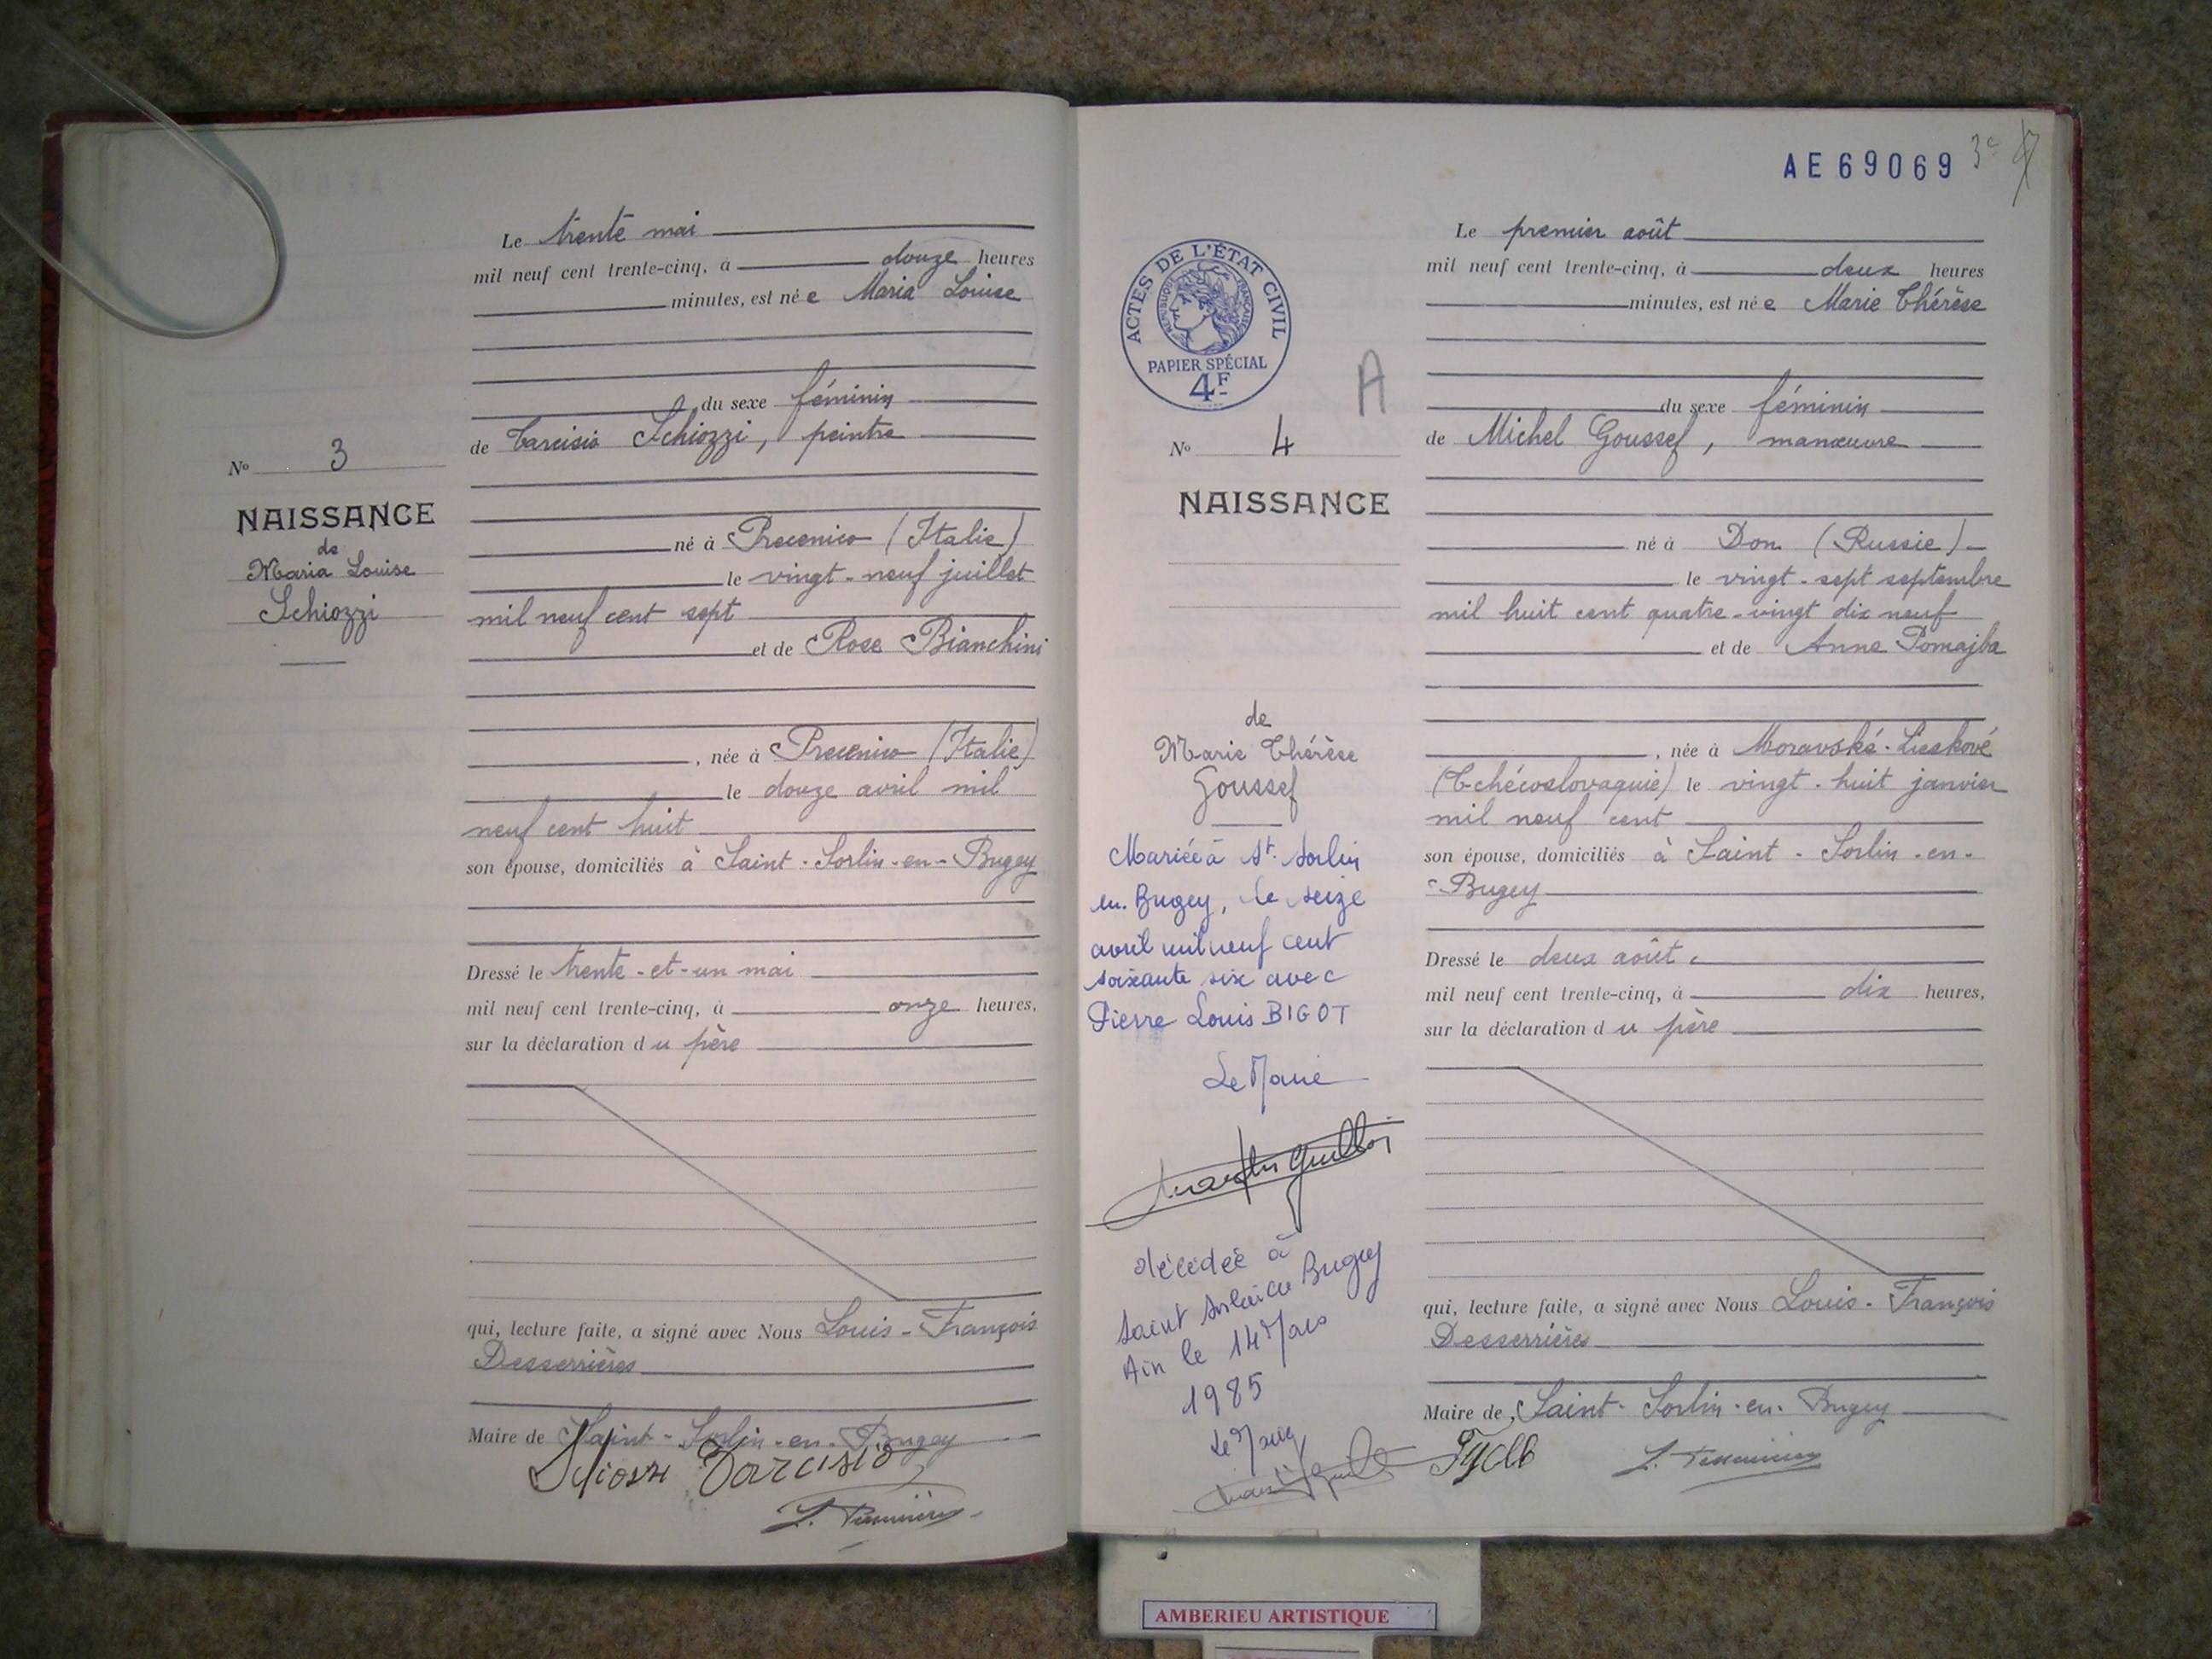 Le trente mai
mil neuf cent trente-cinq, à douze heures
minutes, est née Maria Louise
du sexe féminin
de Tarcisio Schiozzi, peintre
No 3
NAISSANCE
de
Maria Louise
Schiozzi
né à Precenico (Italie)
le vingt-neuf juillet
mil neuf cent sept
et de Rose Bianchini
, née à Precenico (Italie)
le douze avril mil
neuf cent huit
son épouse, domiciliés à Saint-Sorlin-en-Bugey
Dressé le trente-et-un mai
mil neuf cent trente-cinq, à onze heures,
sur la déclaration du père
qui, lecture faite, a signé avec Nous Louis-François
Desserrières
Maire de Saint-Sorlin-en-Bugey
Tarcisio
AE69069
3e
ACTES DE L'ÉTAT CIVIL
RÉPUBLIQUE FRANÇAISE
PAPIER SPÉCIAL
4F
A
No 4
NAISSANCE
de
Marie Thérèse
Goussef
Mariée à St. Sorlin
en-Bugey, le seize
avril mil neuf cent
soixante six avec
Pierre Louis BIGOT
Le Maire
décédée à
Saint Sorlin en Bugey
Ain le 14 Mars
1985
Le Maire
Le premier août
mil neuf cent trente-cinq, à deux heures
minutes, est née Marie Thérèse
du sexe féminin
de Michel Goussef, manœuvre
né à Don (Russie)
le vingt-sept septembre
mil huit cent quatre-vingt dix neuf
et de Anne Pomajba
, née à Moravské-Lieskové
(Tchécoslovaquie) le vingt-huit janvier
mil neuf cent
son épouse, domiciliés à Saint-Sorlin-en-
Bugey
Dressé le deux août
mil neuf cent trente-cinq, à dix heures,
sur la déclaration du père
qui, lecture faite, a signé avec Nous Louis-François
Desserrières
Maire de Saint-Sorlin-en-Bugey
AMBERIEU ARTISTIQUE